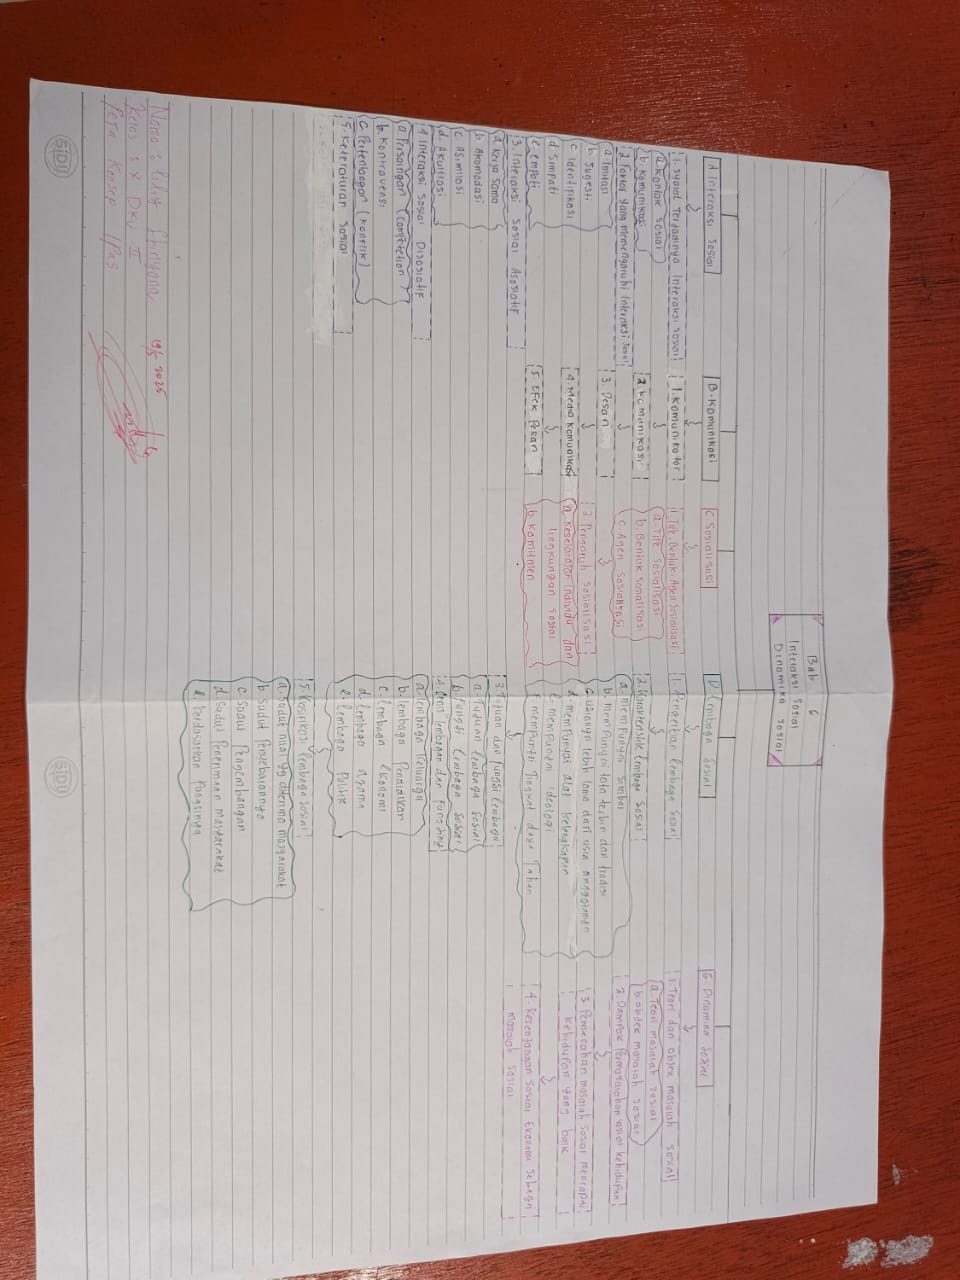 Bab 6
Interaksi Sosial
Dinamika Sosial
A Interaksi Sosial
1. Syarat Terdadinya Interaksi Sosial
a Kontak Sosial
b. Komunikasi
2 Faktor yang memengaruhi Interaksi Sosial
a Imitasi
b Sugesti
c Identifikasi
d. Simpati
e. empati
3. Interaksi Sosial Asosiatif
a kerja sama
b Akomodasi
c Asimilasi
d. Akultrasi
4. Interaksi Sosial Disosiatif
a. Persaingan (Competetion)
b. Kontravensi
c. Pertentangan (Konflik)
5. Keteraturan Sosial
B. Komunikasi
1. Komunikator
2 Komunikasi
3. Pesan
4. Media Komunikasi
5. Efek Pesan
C Sosialisasi
1 Tife, Bentuk, Agen Sosialisasi
a Tife Sosialisasi
b. Bentuk Sosialisasi
c. Agen Sosialisasi
2 Pengaruh Sosialisasi
a. Keselarasan Individu dan
lingkungan Sosial
b. Komitmen
D. Lembaga Sosial
1. Pengertian Lembaga Sosial
2. Karakteristik Lembaga Sosial
a. memPunyai simbol
b. memPunyai tata tertib dan tradisi
c. usianya lebih lama dari usia anggotanya
d. memPunyai alat kelengkapan
e memPunyai ideologi
f memPunyai Tingkat daya Tahan
3. Tujuan dan fungsi Lembaga
a. Tujuan Lembaga Sosial
b. Fungsi Lembaga Sosial
4. Jenis Lembaga dan Fungsinya
a. Lembaga Keluarga
b. Lembaga Pendidikan
c. Lembaga Ekonomi
d. Lembaga Agama
e. Lembaga Politik
5. Klasifikasi Lembaga Sosial
a. Sudut nilai yg diterima masyarakat
b. Sudut Penyebarannya
c. Sudut Pengembangan
d. Sudut Penerimaan masyarakat
e. Berdasarkan Fungsinya
G. Dinamika Sosial
1. Teori dan objek masalah Sosial
a. Teori masalah Sosial
b. objek masalah Sosial
2. Dampak Permasalahan Sosial kehidupan
3. Pemecahan masalah Sosial mencapai
kehidupan yang baik
4. Kesenjangan Sosial Ekonomi Sebagai
masalah Sosial
Kelas : X DKV II
Peta Konsep IPAS
19/5 2025
SIDU
SIDU